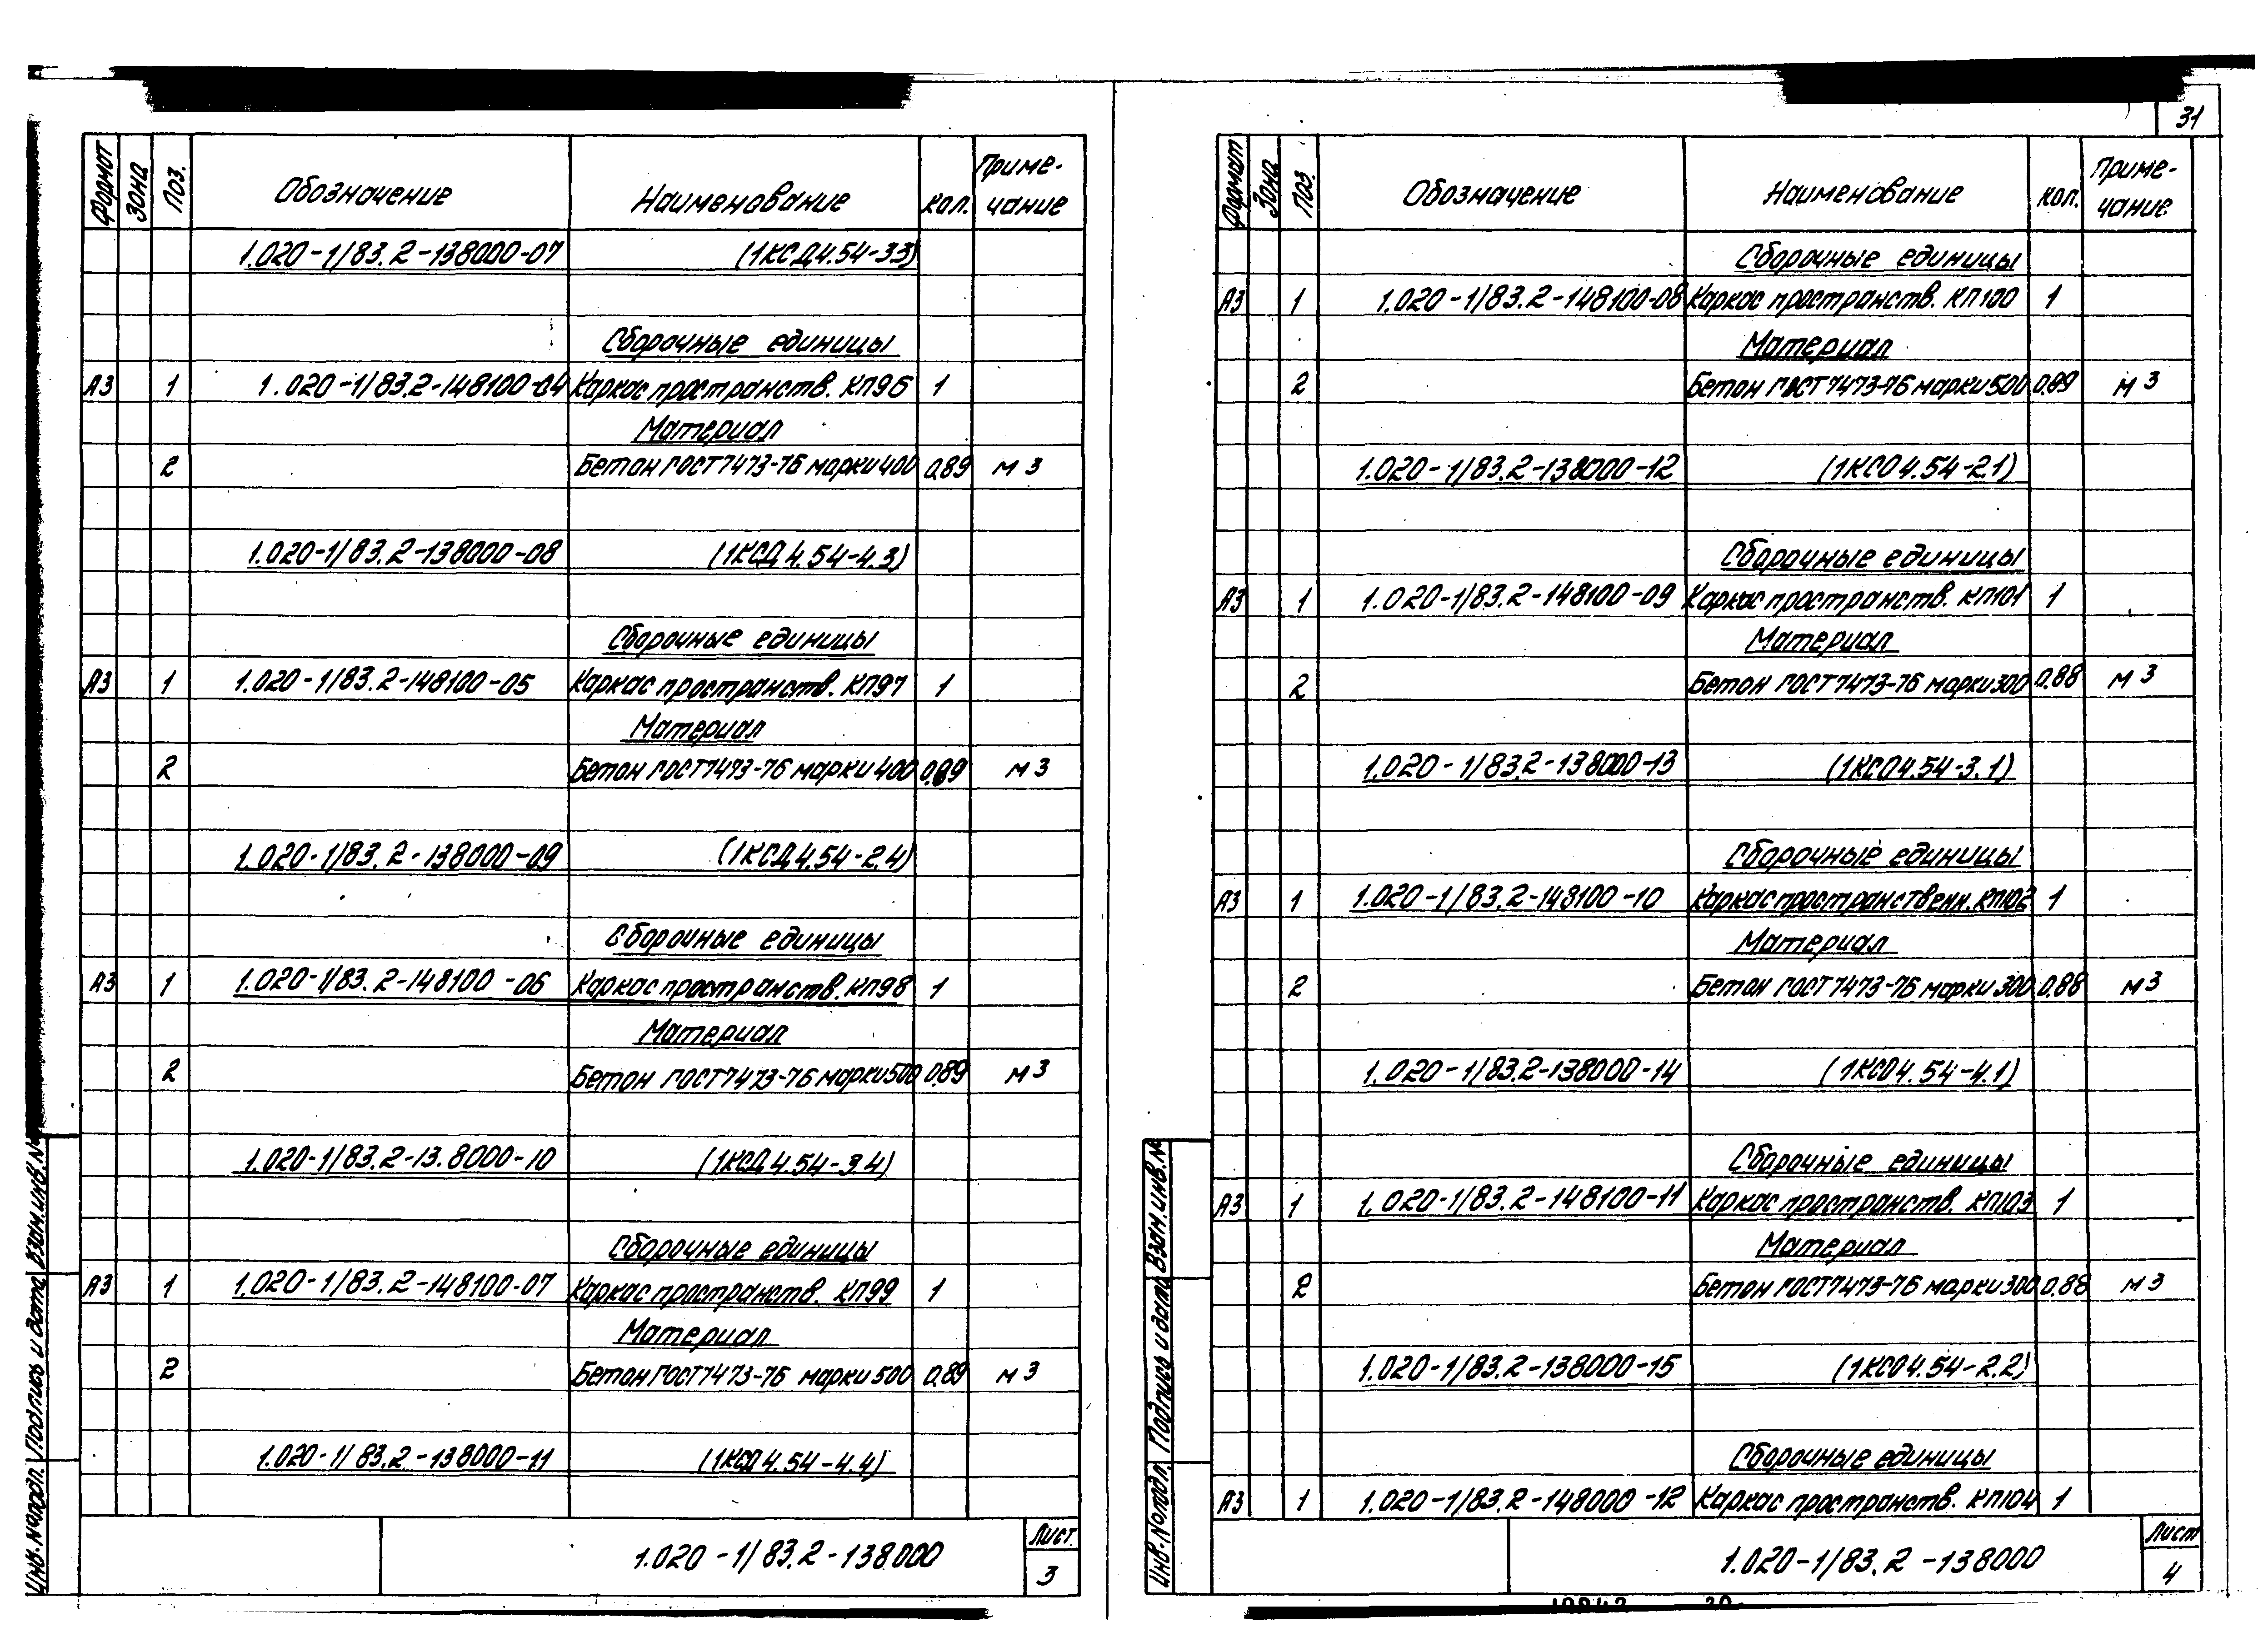 31
Формат Зона Поз. Обозначение Наименование Кол. Приме-
чание
1.020-1/83.2-138000-07 (1КСД4.54-3.3)
Сборочные единицы
А3 1 1.020-1/83.2-148100-04 Каркас пространств. КП96 1
Материал
2 Бетон ГОСТ7473-76 марки 400 0,89 м3
1.020-1/83.2-138000-08 (1КСД4.54-4.3)
Сборочные единицы
А3 1 1.020-1/83.2-148100-05 Каркас пространств. КП97 1
Материал
2 Бетон ГОСТ7473-76 марки 400 0,89 м3
1.020-1/83.2-138000-09 (1КСД4.54-2.4)
Сборочные единицы
А3 1 1.020-1/83.2-148100-06 Каркас пространств. КП98 1
Материал
2 Бетон ГОСТ7473-76 марки 500 0,89 м3
1.020-1/83.2-13.8000-10 (1КСД4.54-3.4)
Сборочные единицы
А3 1 1.020-1/83.2-148100-07 Каркас пространств. КП99 1
Материал
2 Бетон ГОСТ7473-76 марки 500 0,89 м3
1.020-1/83.2-138000-11 (1КСД4.54-4.4)
1.020-1/83.2-138000
Лист
3
Инв.№подл. Подпись и дата Взам.инв.№
Формат Зона Поз. Обозначение Наименование Кол. Приме-
чание
Сборочные единицы
А3 1 1.020-1/83.2-148100-08 Каркас пространств. КП100 1
Материал
2 Бетон ГОСТ7473-76 марки 500 0,89 м3
1.020-1/83.2-138000-12 (1КСО4.54-2.1)
Сборочные единицы
А3 1 1.020-1/83.2-148100-09 Каркас пространств. КП101 1
Материал
2 Бетон ГОСТ7473-76 марки 300 0,88 м3
1.020-1/83.2-138000-13 (1КСО4.54-3.1)
Сборочные единицы
А3 1 1.020-1/83.2-148100-10 Каркас пространственн. КП102 1
Материал
2 Бетон ГОСТ7473-76 марки 300 0,88 м3
1.020-1/83.2-138000-14 (1КСО4.54-4.1)
Сборочные единицы
А3 1 1.020-1/83.2-148100-11 Каркас пространств. КП103 1
Материал
2 Бетон ГОСТ7473-76 марки 300 0,88 м3
1.020-1/83.2-138000-15 (1КСО4.54-2.2)
Сборочные единицы
А3 1 1.020-1/83.2-148000-12 Каркас пространств. КП104 1
1.020-1/83.2-138000
Лист
4
Инв.№подл. Подпись и дата Взам.инв.№